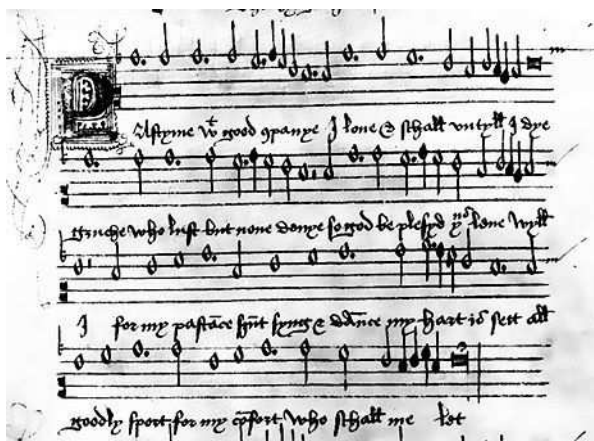 PAstyme wt good ꝯpanye I loue & schall vntyll I dye
gruche who lust but none denye so god be plesyd yus leue wyll
I for my pastāce hūt syng & dāuce my hart is sett all
goodly sport for my cōfort who schall me let